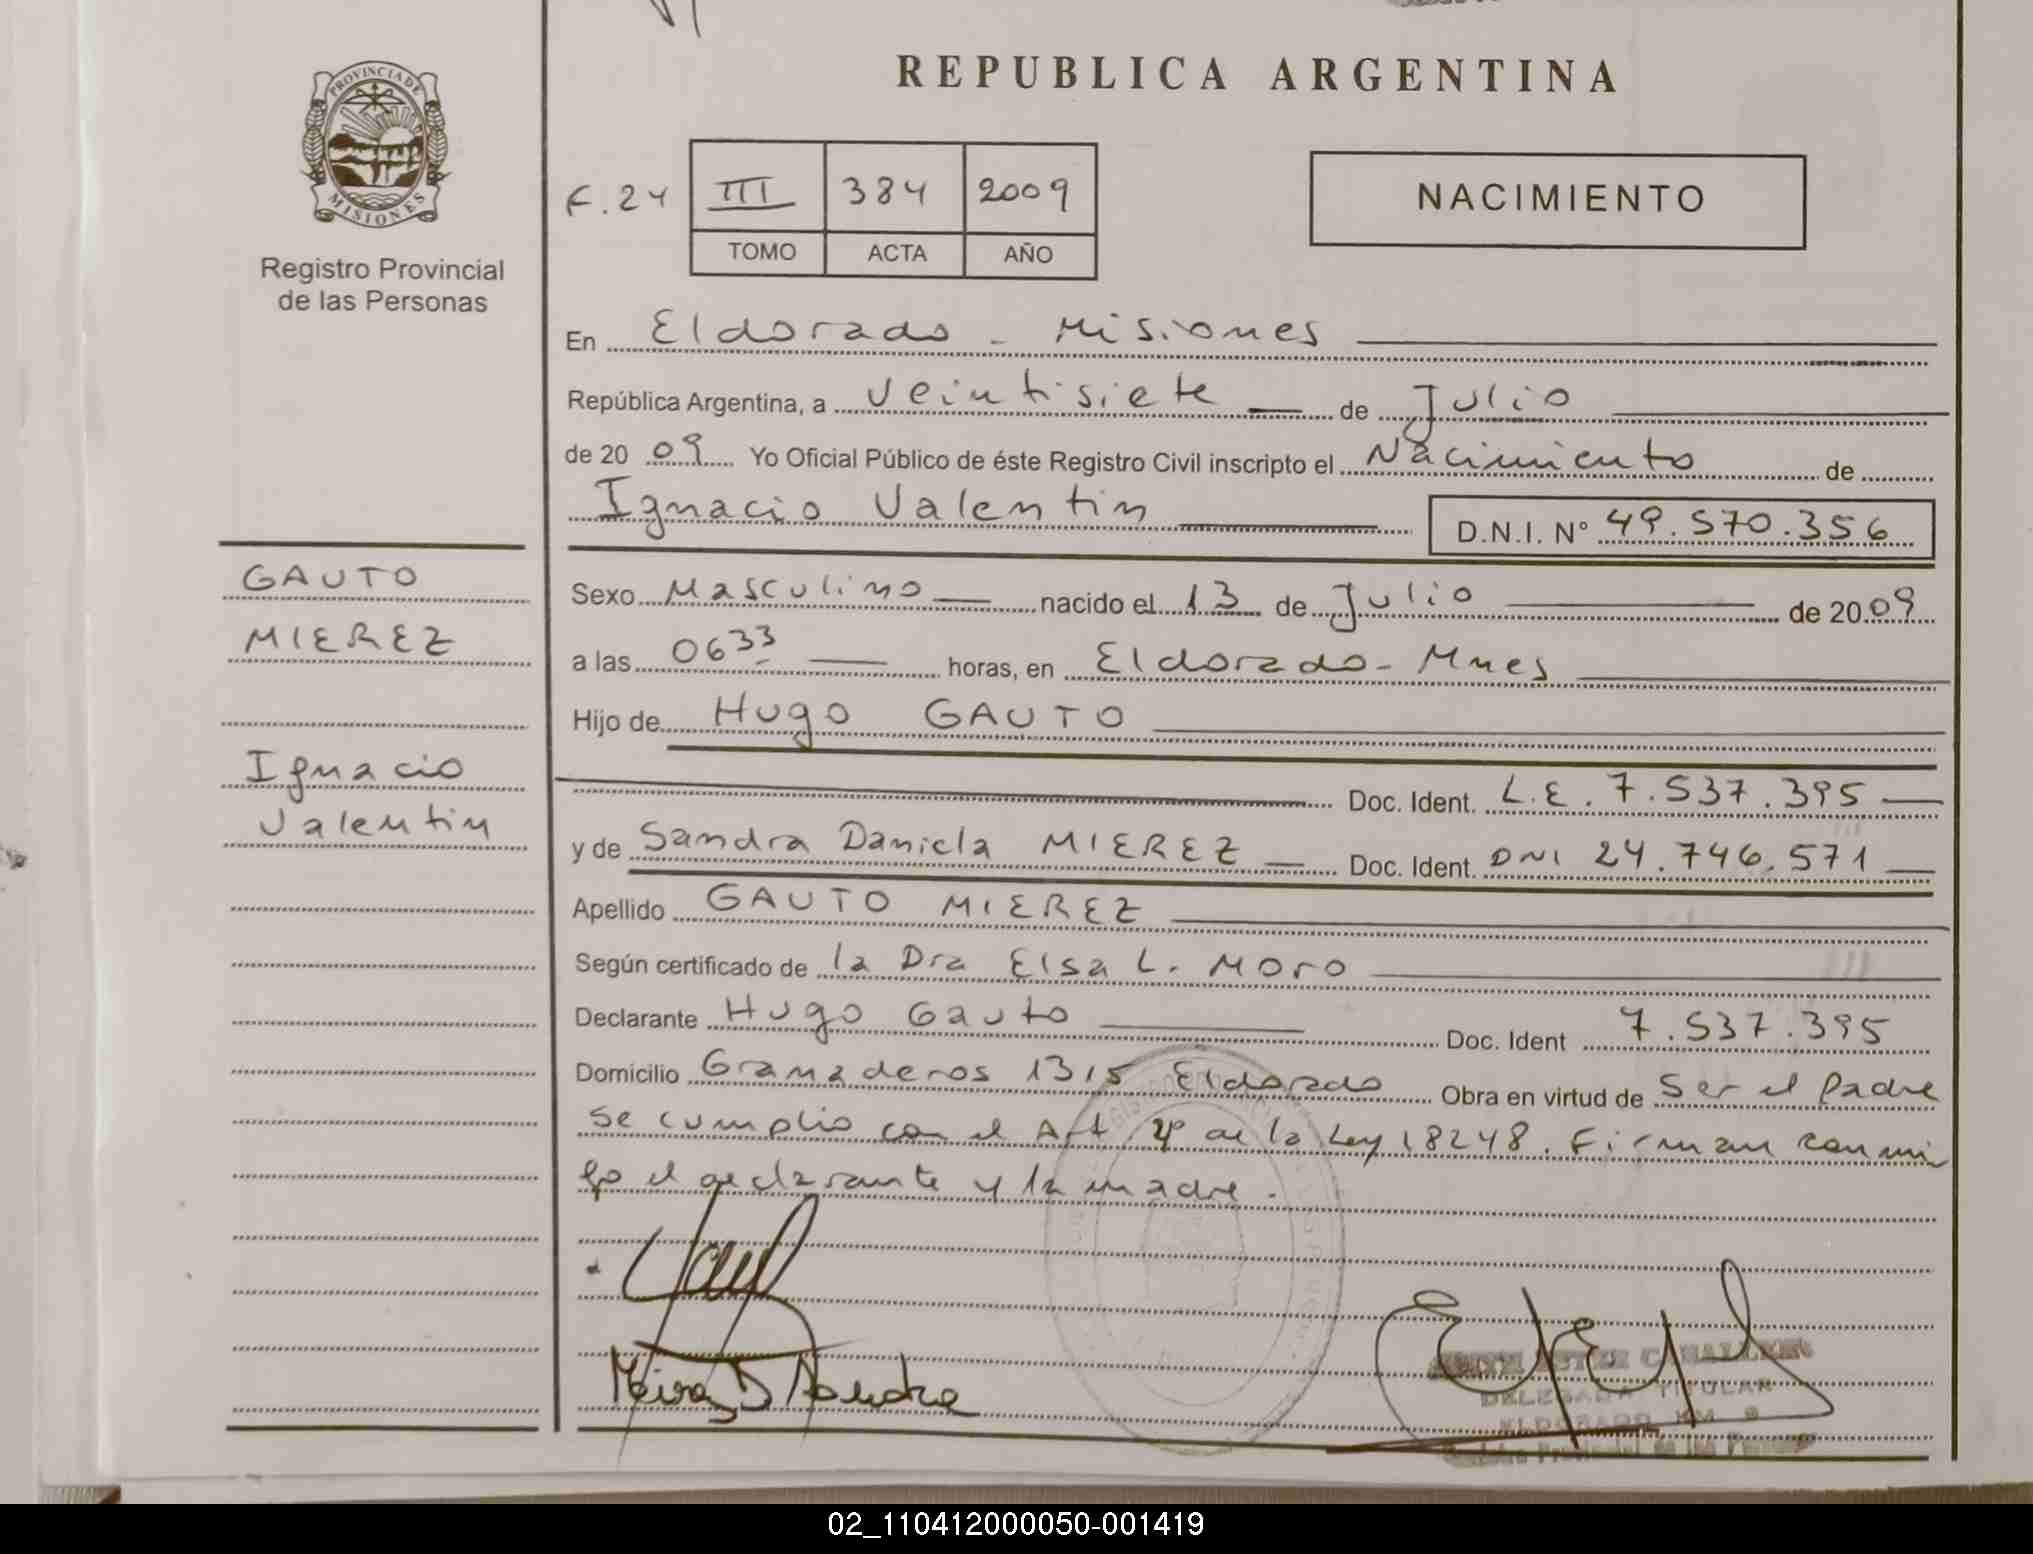 REPUBLICA ARGENTINA
PROVINCIA DE MISIONES
Registro Provincial
de las Personas
F. 24
III 384 2009
TOMO ACTA AÑO
NACIMIENTO
En Eldorado - Misiones
República Argentina, a veintisiete de Julio
de 2009 Yo Oficial Público de éste Registro Civil inscripto el Nacimiento de
Ignacio Valentin D.N.I. Nº 49.570.356
GAUTO
MIEREZ
Ignacio
Valentin
Sexo Masculino nacido el 13 de Julio de 2009
a las 0633 horas, en Eldorado - Mnes
Hijo de Hugo GAUTO
Doc. Ident. L.E. 7.537.395
y de Sandra Daniela MIEREZ Doc. Ident. DNI 24.746.571
Apellido GAUTO MIEREZ
Según certificado de la Dra Elsa L. Moro
Declarante Hugo Gauto Doc. Ident 7.537.395
Domicilio Granaderos 1315 Eldorado Obra en virtud de Ser el Padre
Se cumplio con el Art 2º de la Ley 18248. Firman conmi
go el declarante y la madre.
DELEGADA TITULAR
ELDORADO KM 9
Registro Provincial de las Personas
02_110412000050-001419